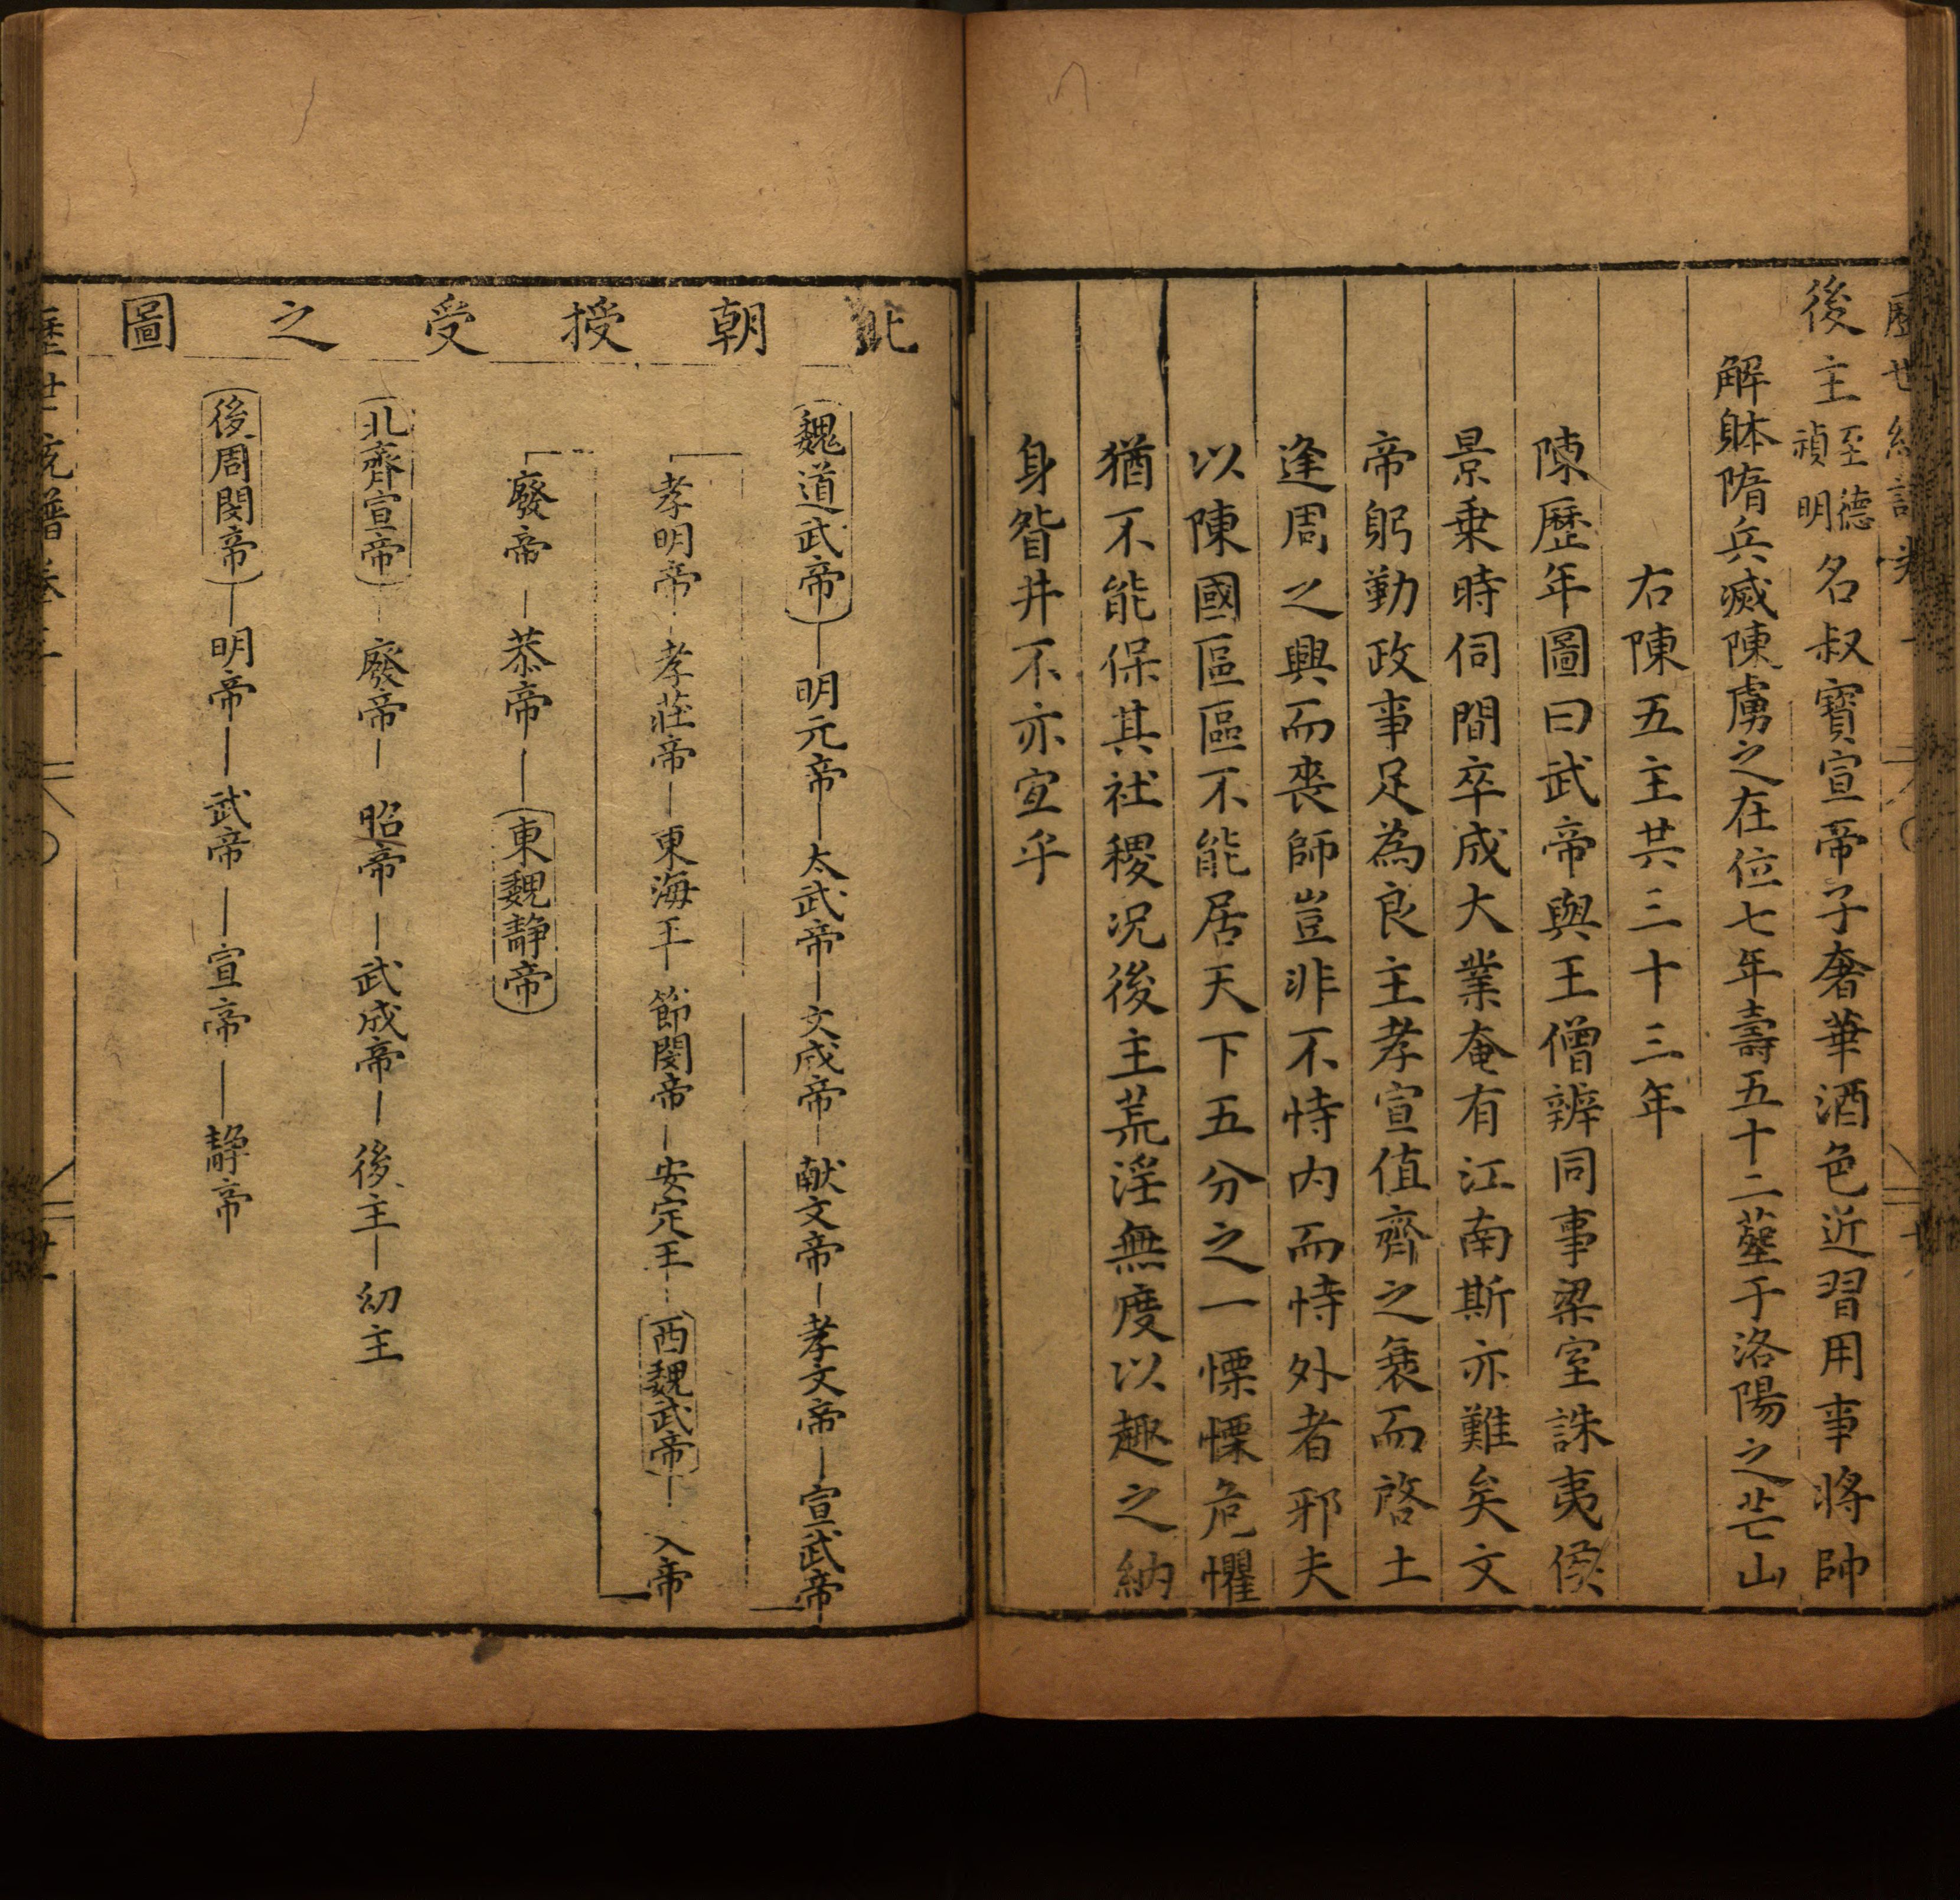 後主至德禎明名叔寳宣帝子奢華酒色近習用事將帥
解躰隋兵滅陳虜之在位七年壽五十二塟于洛陽之芒山
右陳五主共三十三年
陳歷年圖曰武帝與王僧辨同事梁室誅夷侯
景乗時伺間卒成大業奄有江南斯亦難矣文
帝躬勤政事足為良主孝宣值齊之衰而啓土
逢周之興而喪師豈非不恃内而恃外者邪夫
以陳國區區不能居天下五分之一慄慄危懼
猶不能保其社稷况後主荒淫無度以趣之納
身眢井不亦宜乎
北朝授受之圖
魏道武帝—明元帝—太武帝—文成帝—献文帝—孝文帝—宣武帝
孝明帝—孝莊帝—東海王—節閔帝—安定王—西魏武帝—入帝
廢帝—恭帝—東魏靜帝
北齊宣帝—廢帝—昭帝—武成帝—後主—幼主
後周閔帝—明帝—武帝—宣帝—靜帝